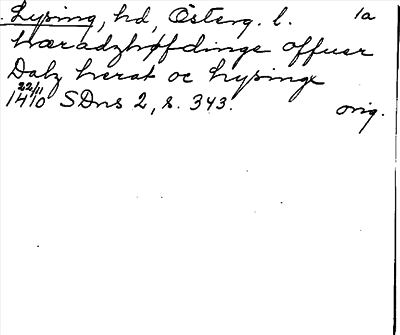 Lysing, hd, Österg. l. 1a
hæradzhøfdinge offuer
Dalz herat oc lysinge
22/11
1410 SDns 2, s. 343. orig.